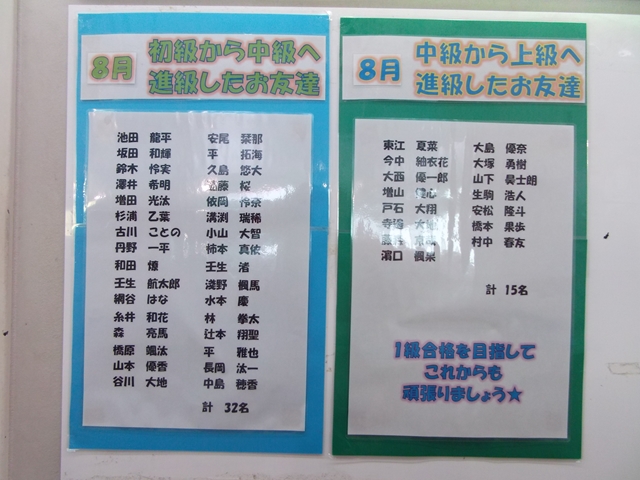 8月
初級から中級へ
進級したお友達
池田 龍平
坂田 和輝
鈴木 怜実
澤井 希明
増田 光汰
杉浦 乙葉
古川 ことの
丹野 一平
和田 燎
壬生 航太郎
網谷 はな
糸井 和花
森 亮馬
橋原 颯汰
山本 優香
谷川 大地
安尾 栞那
平 拓海
久島 悠大
藤 桜
依岡 怜奈
溝渕 瑞稀
小山 大智
柿本 真依
壬生 渚
淺野 楓馬
水本 慶
林 拳太
辻本 翔聖
平 雅也
長岡 汰一
中島 穂香
計 32名
8月
中級から上級へ
進級したお友達
東江 夏葉
今中 紬衣花
大西 優一郎
増山 心
戸石 大翔
寺 大
濱口 楓果
大島 優奈
大塚 勇樹
山下 昊士朗
生駒 浩人
安松 隆斗
橋本 果歩
村中 春友
計 15名
1級合格を目指して
これからも
頑張りましょう★